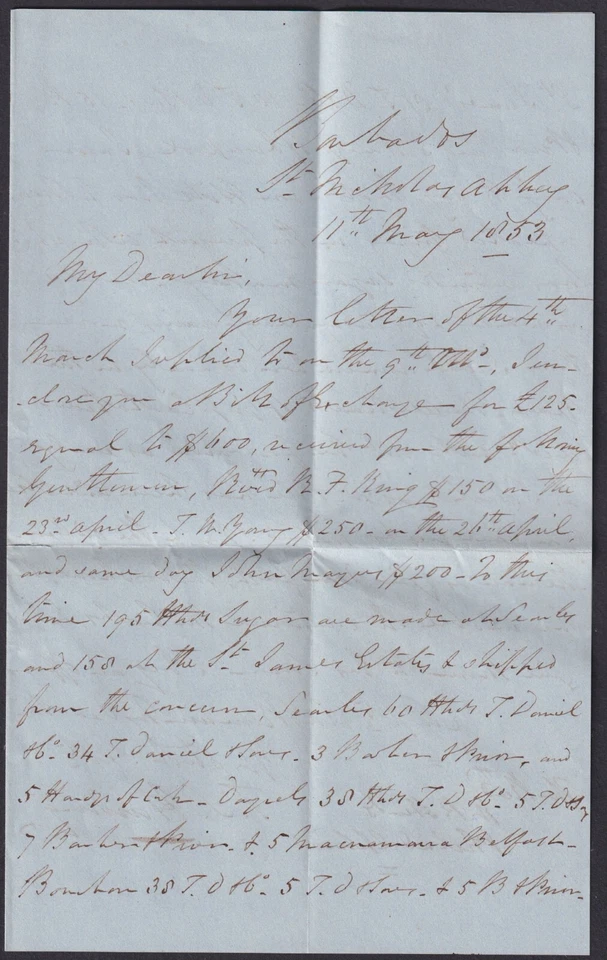 Barbados
St. Nicholas Abbey
11th May 1853
My Dear Sir,
Your letter of the 4th
March I replied to on the 9th Ulto, I en-
close you a Bill of Exchange for £125-
equal to $600, received from the following
Gentlemen, Revd R. F. King $150 on the
23rd April - T. W. Young $250 - on the 26th April
and same day John Mayers $200 - To this
time 195 Hhds Sugar are made at Searles
and 158 at the St. James Estates & shipped
from the concern, Searles 60 Hhds T. Daniel
& Co. 34 T. Daniel & Sons - 3 Barber & Prior, and
5 Hardy - Dayrels 38 Hhds T. D & Co. 5 T. D & Sons
7 Barber & Prior - & 5 Macnamara Belfast -
Bourbon 38 T. D & Co. 5 T. D & Sons - & 5 B & Prior -